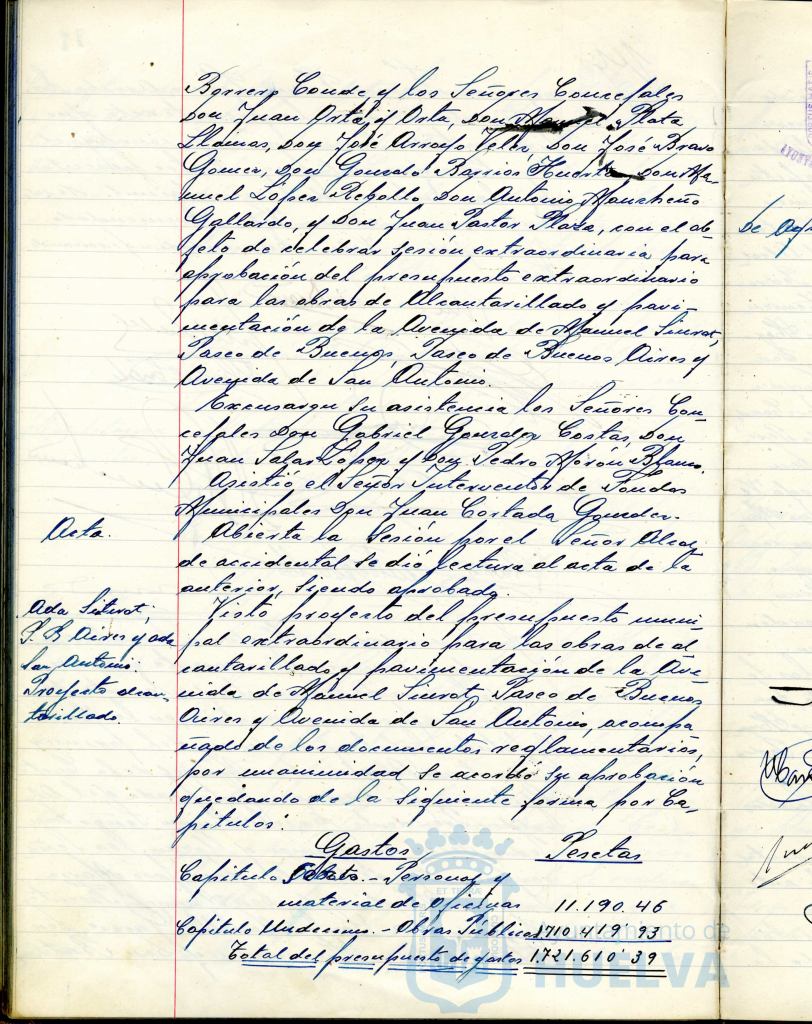 Borrero Conde, y los Señores Concejales
Don Juan Orta y Orta, Don Manuel Plata
Llamas, Don José Arroyo Velez, Don José Bravo
Gomez, Don Gonzalo Barrios Huerta, Don Ma-
nuel López Rebollo Don Antonio Mancheño
Gallardo, y Don Juan Pastor Plaza, con el ob-
jeto de celebrar sesión extraordinaria para
aprobación del presupuesto extraordinario
para las obras de Alcantarillado y pavi-
mentación de la Avenida de Manuel Siurot,
Paseo de Buenos, Paseo de Buenos Aires y
Avenida de San Antonio.
Excusaron su asistencia los Señores Con-
cejales Don Gabriel Gonzalez Costas, Don
Juan Salar López y Don Pedro Morón Blanco.
Asistió el Señor Interventor de Fondos
Municipales Don Juan Cortada Gonzalez.
Acta.
Abierta la Sesión por el Señor Alcal-
de accidental se dió lectura al acta de la
anterior, siendo aprobada.
Ada Siurot;
P. B Aires y ada
San Antonio:
Proyecto alcan-
tarillado.
Visto proyecto del presupuesto muni-
pal extraordinario para las obras de al
cantarillado y pavimentación de la Ave-
nida de Manuel Siurot, Paseo de Buenos
Aires y Avenida de San Antonio, acompa
ñado de los documentos reglamentarios,
por unanimidad se acordó su aprobación
quedando de la siguiente forma por Ca-
pitulos:
Gastos Pesetas
Capitulo - Personal y
material de oficinas 11.190.46
Capitulo Undecimo. - Obras Públicas 1.710.419'93
Total del presupuesto de gastos 1.721.610'39
Ayuntamiento de
HUELVA